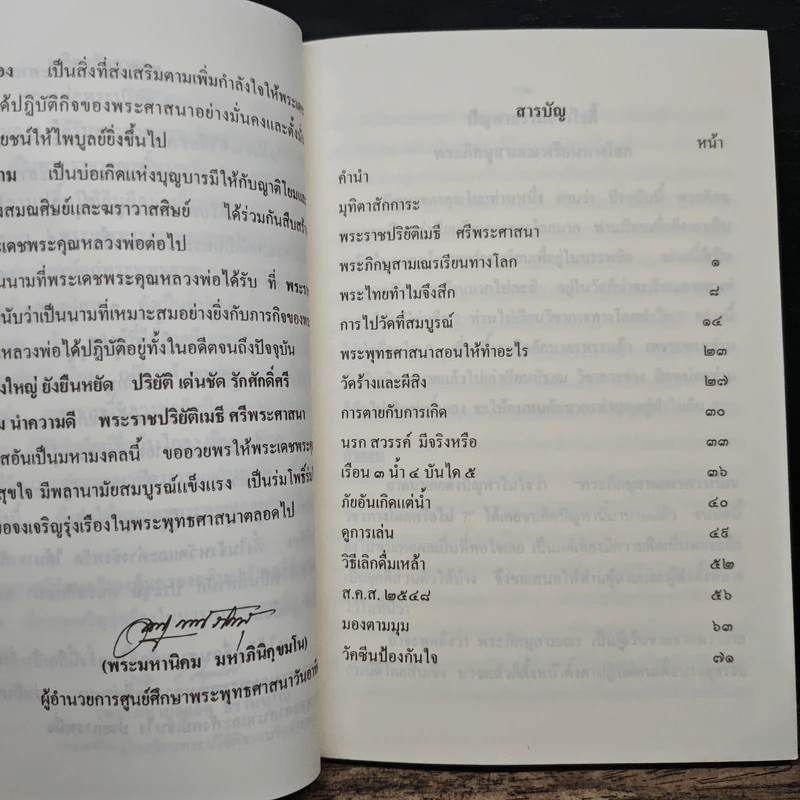 เป็นสิ่งที่ส่งเสริมตามเพิ่มกำลังใจให้พระเดช
ได้ปฏิบัติกิจของพระศาสนาอย่างมั่นคงและตั้งใจ
ยชน์ให้ไพบูลย์ยิ่งขึ้นไป
าม เป็นบ่อเกิดแห่งบุญบารมีให้กับญาติโยมและ
งสมณศิษย์และฆราวาสศิษย์ ได้ร่วมกันสืบสร้า
ะเดชพระคุณหลวงพ่อต่อไป
นนามที่พระเดชพระคุณหลวงพ่อได้รับ ที่ พระรา
นับว่าเป็นนามที่เหมาะสมอย่างยิ่งกับภารกิจของพระ
หลวงพ่อได้ปฏิบัติอยู่ทั้งในอดีตจนถึงปัจจุบัน
งใหญ่ ยังยืนหยัด ปริยัติ เด่นชัด รักศักดิ์ศรี
ม นำความดี พระราชปริยัติเมธี ศรีพระศาสนา
สอันเป็นมหามงคลนี้ ขออวยพรให้พระเดชพระคุ
สุขใจ มีพลานามัยสมบูรณ์แข็งแรง เป็นร่มโพธิ์ร่ม
่อจงเจริญรุ่งเรืองในพระพุทธศาสนาตลอดไป
(พระมหานิคม มหาภินิกฺขมโน)
ผู้อำนวยการศูนย์ศึกษาพระพุทธศาสนาวันอาทิ
สารบัญ
หน้า
คำนำ
มุทิตาสักการะ
พระราชปริยัติเมธี ศรีพระศาสนา
พระภิกษุสามเณรเรียนทางโลก ๑
พระไทยทำไมจึงสึก ๘
การไปวัดที่สมบูรณ์ ๑๔
พระพุทธศาสนาสอนให้ทำอะไร ๒๓
วัดร้างและผีสิง ๒๗
การตายกับการเกิด ๓๐
นรก สวรรค์ มีจริงหรือ ๓๓
เรือน ๓ น้ำ ๔ บันได ๕ ๓๖
ภัยอันเกิดแต่น้ำ ๔๐
ดูการเล่น ๔๙
วิธีเลิกดื่มเหล้า ๕๒
ส.ค.ส. ๒๕๔๘ ๕๖
มองตามมุม ๖๓
วัคซีนป้องกันใจ ๗๑